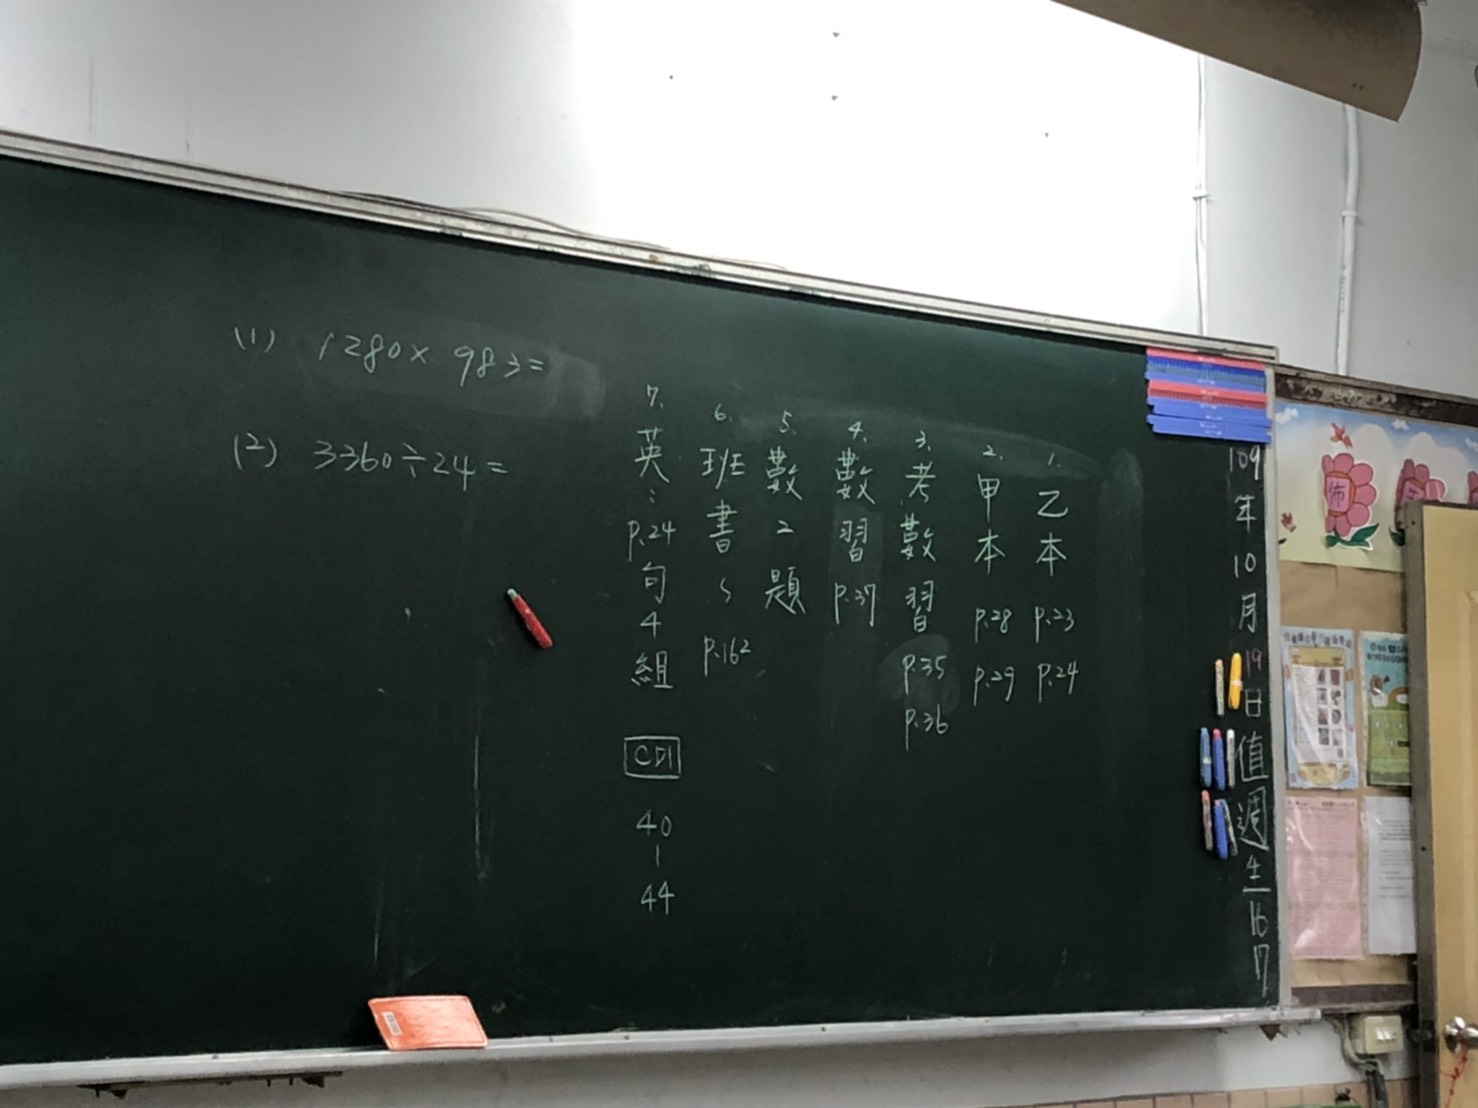 (1) 1280× 983=
(2) 3360÷24=
109年10月19日值週生16 17
1. 乙本 p.23 p.24
2. 甲本 p.28 p.29
3. 考數習 p.35 p.36
4. 數習 p.37
5. 數2題
6. 班書 p.162
7. 英: p.24句4組 CD1 40 | 44
佈